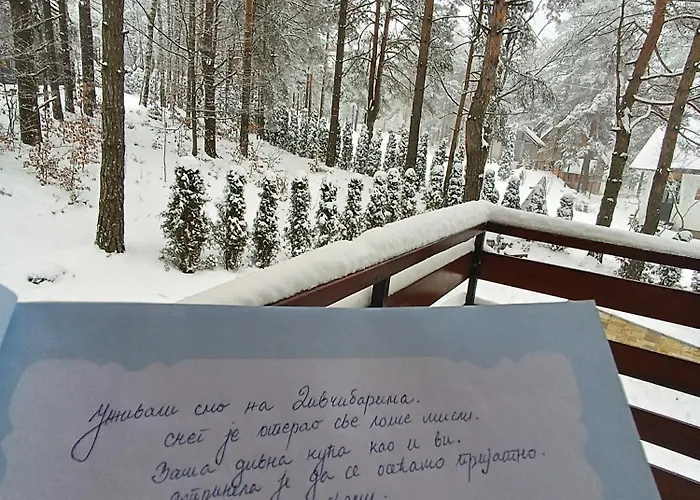 Уживали смо на Дивчибарима.
снег је отерао све лоше мисли.
Ваша дивна кућа као и ви.
је да се осећамо пријатно.